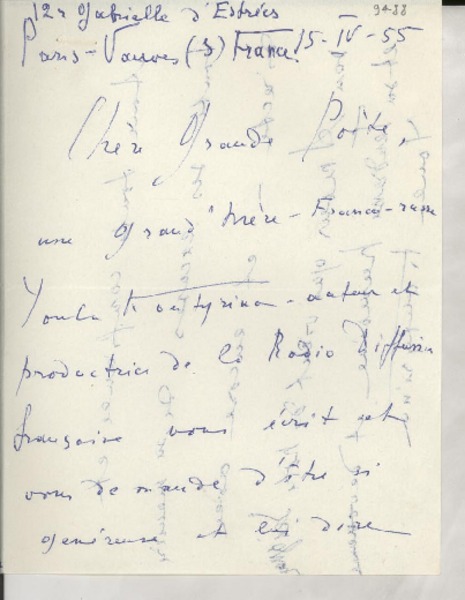 12r Gabrielle d'Estrées 9488
Paris-Vanves (S) France. 15-IV-55
Chère Grande Poète,
une grand'Mère-Franco-russe
Youlia - auteur et
productrice de la Radio Diffusion
française vous écrit et
vous demande d'être si
généreuse et lui dire